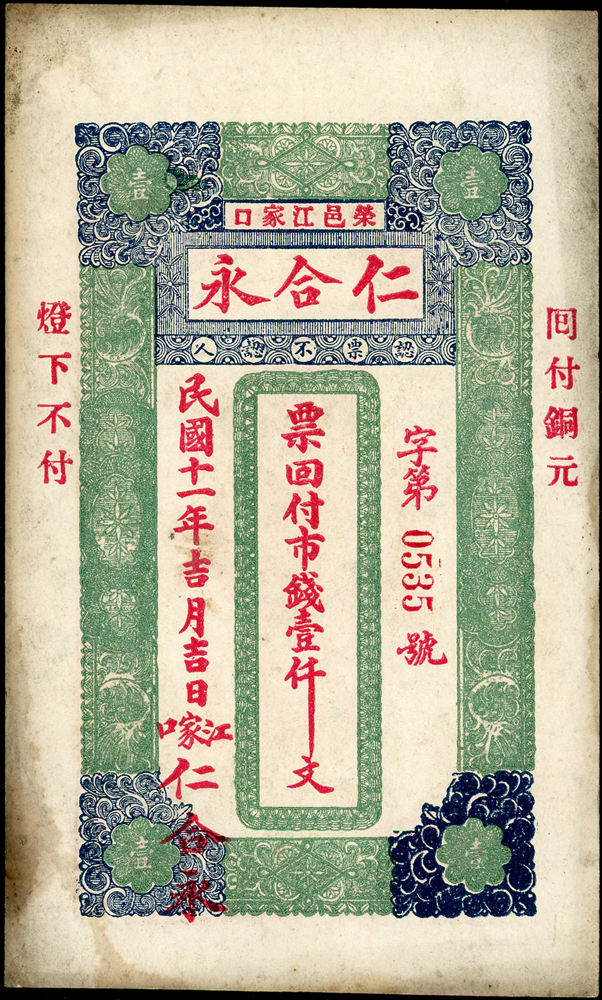 榮邑江家口
仁合永
認票不認人
囘付銅元
字第 0535 號
票回付市錢壹仟文
民國十一年吉月吉日
江家口
仁合永
燈下不付
壹
壹
壹
壹